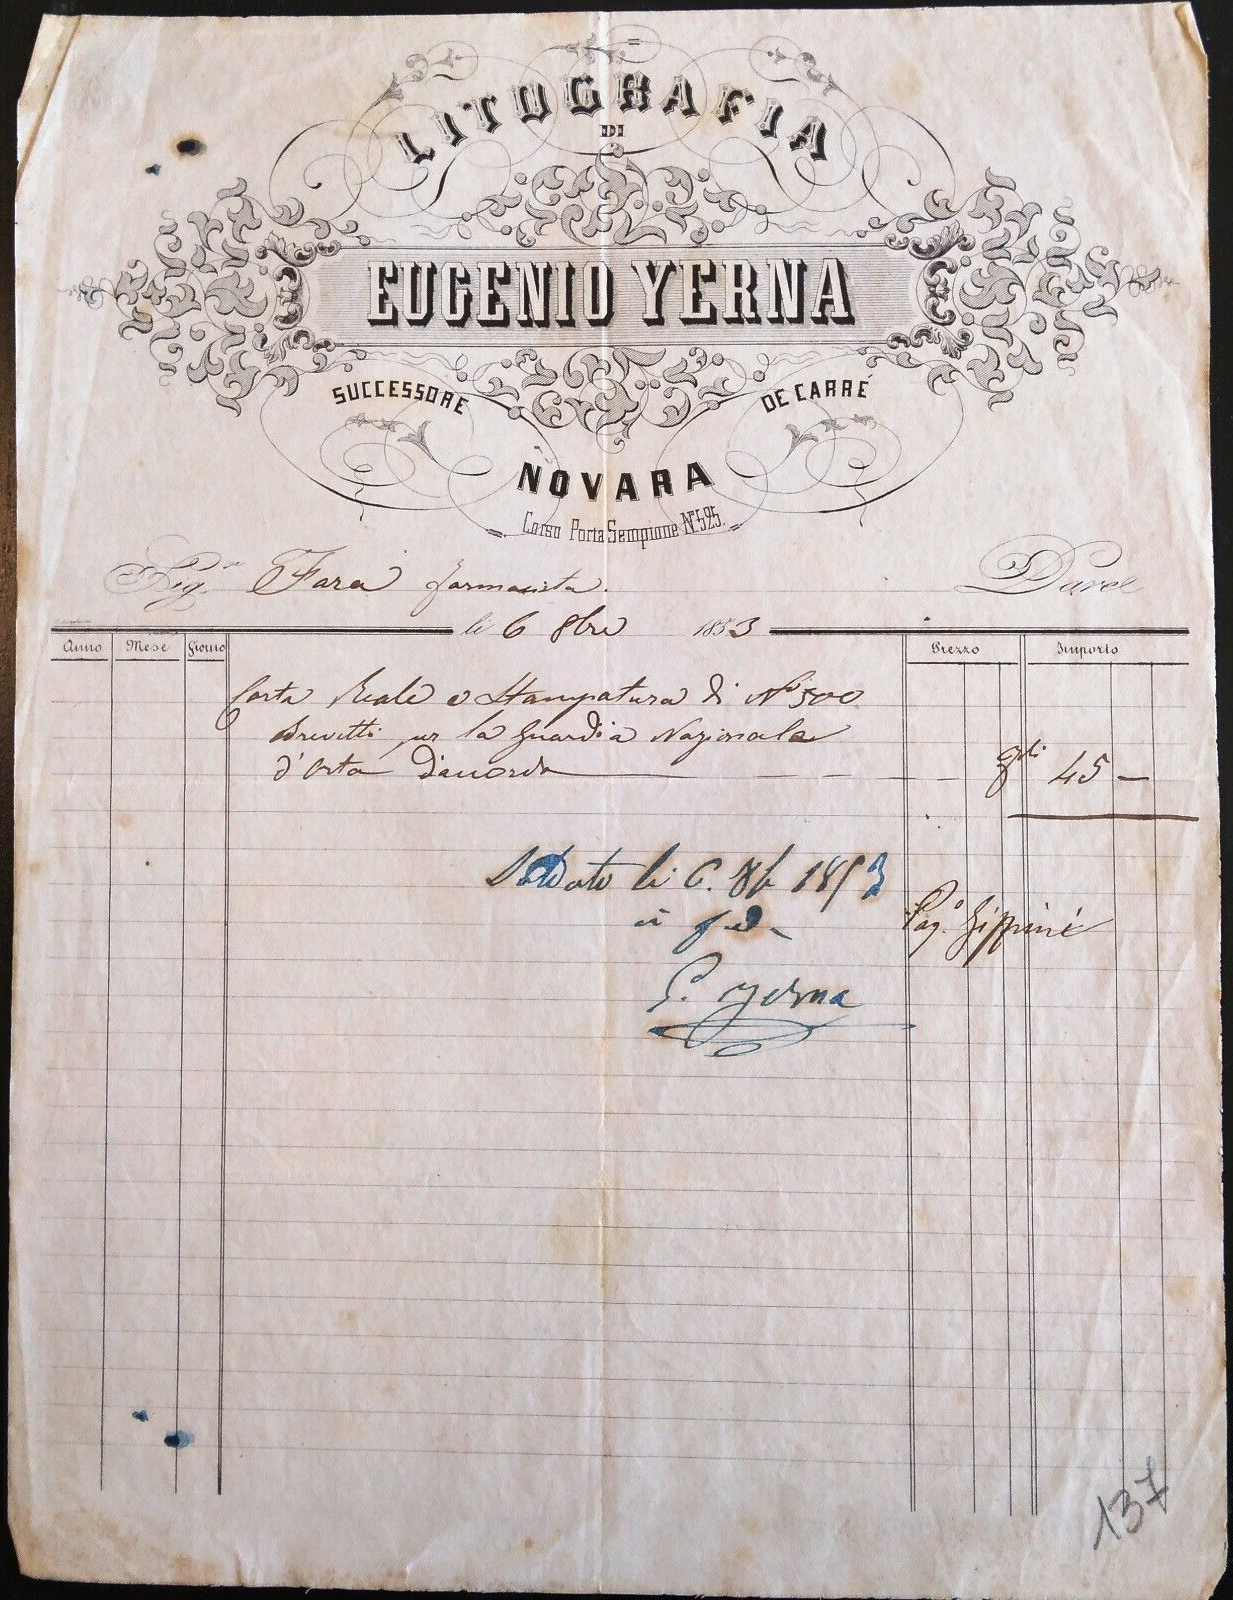 LITOGRAFIA
DI
EUGENIO YERNA
SUCCESSORE DE CARRÉ
NOVARA
Corso Porta Sempione N° 525.
Sig.r Fara farmacista. Dare
li 6 8bre 1853
Anno Mese Giorno Prezzo Importo
Carta Reale e Stampatura di N° 500
Brevetti per la Guardia Nazionale
d'Orta d'accordo 45 —
Saldato li 6. 8b 1853
E. Yerna
Pag.o
137